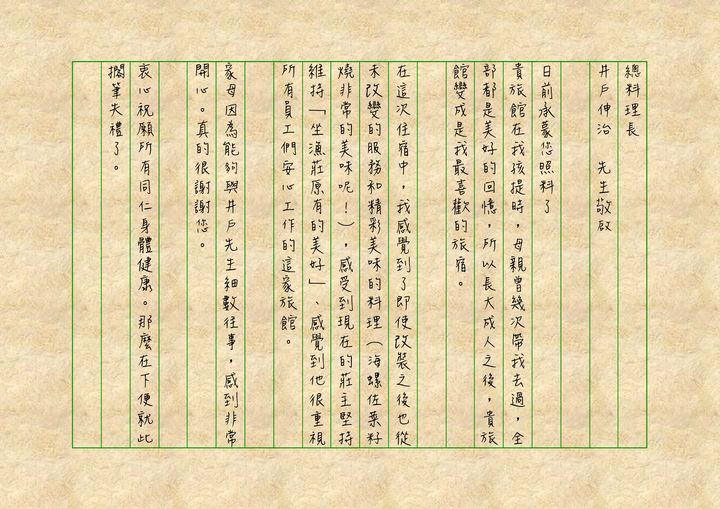 總料理長
井戶伸治　先生敬啟
日前承蒙您照料了
貴旅館在我孩提時，母親曾幾次帶我去過，全
部都是美好的回憶，所以長大成人之後，貴旅
館變成是我最喜歡的旅宿。
在這次住宿中，我感覺到了即使改裝之後也從
未改變的服務和精彩美味的料理（海螺佐葉籽
燒非常的美味呢！），感受到現在的莊主堅持
維持「坐漁莊原有的美好」、感覺到他很重視
所有員工們安心工作的這家旅館。
家母因為能夠與井戶先生細數往事，感到非常
開心。真的很謝謝您。
衷心祝願所有同仁身體健康。那麼在下便就此
擱筆失禮了。